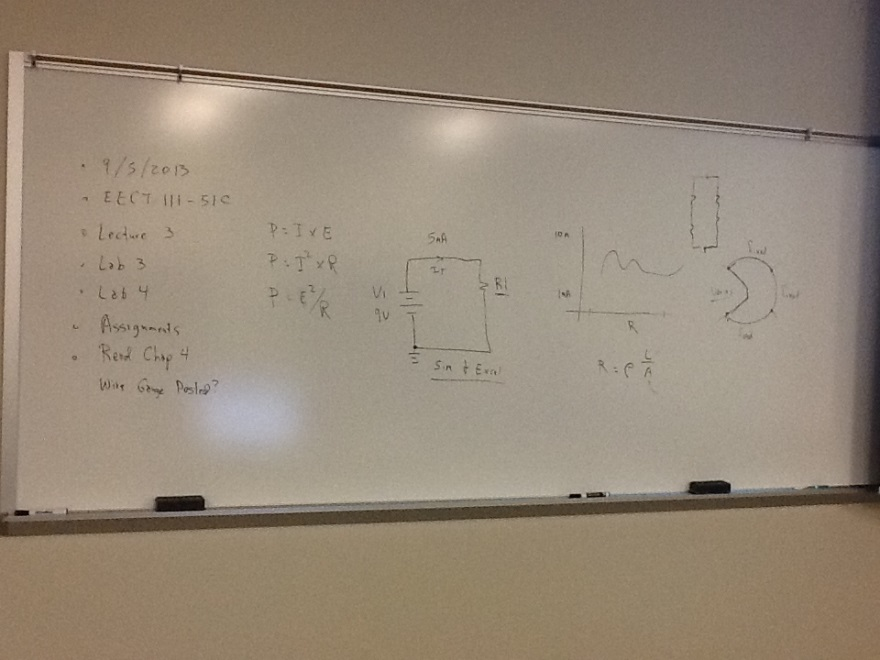 9/5/2013
EECT 111-51C
Lecture 3
Lab 3
Lab 4
Assignments
Read Chap 4
Wire Gauge Posted?
P = I x E
P = I² x R
P = E²/R
5mA
IT
V1
9V
R1
Sim & Excel
10m
1m
R
R = ρ L/A